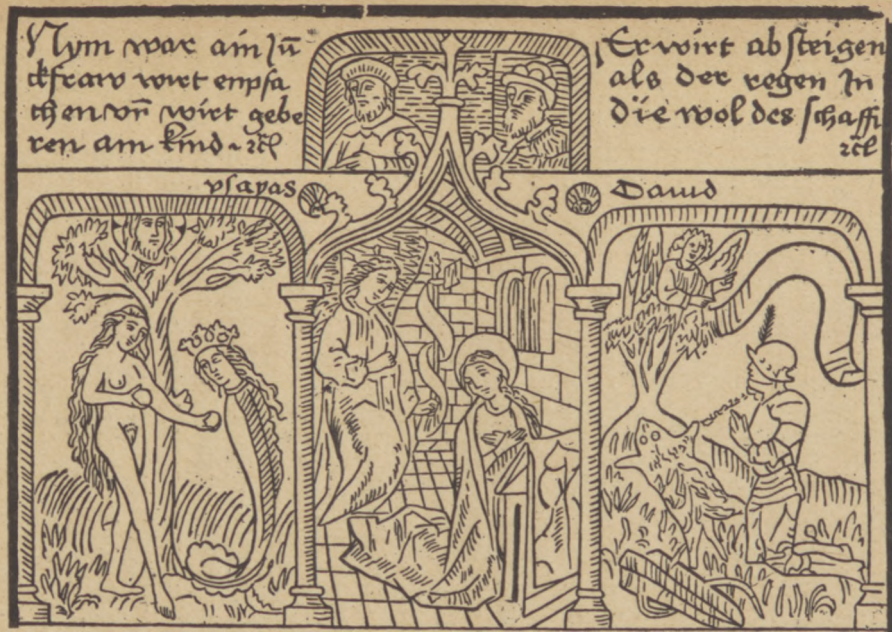 Nym war ain Jū
ckfraw wirt enpfa
chen vn̄ wirt gebe
ren ain kind ꝛcꝭ
ysayas
Er wirt ab steigen
als der regen In
die wol des schaffs
ꝛcꝭ
Dauid